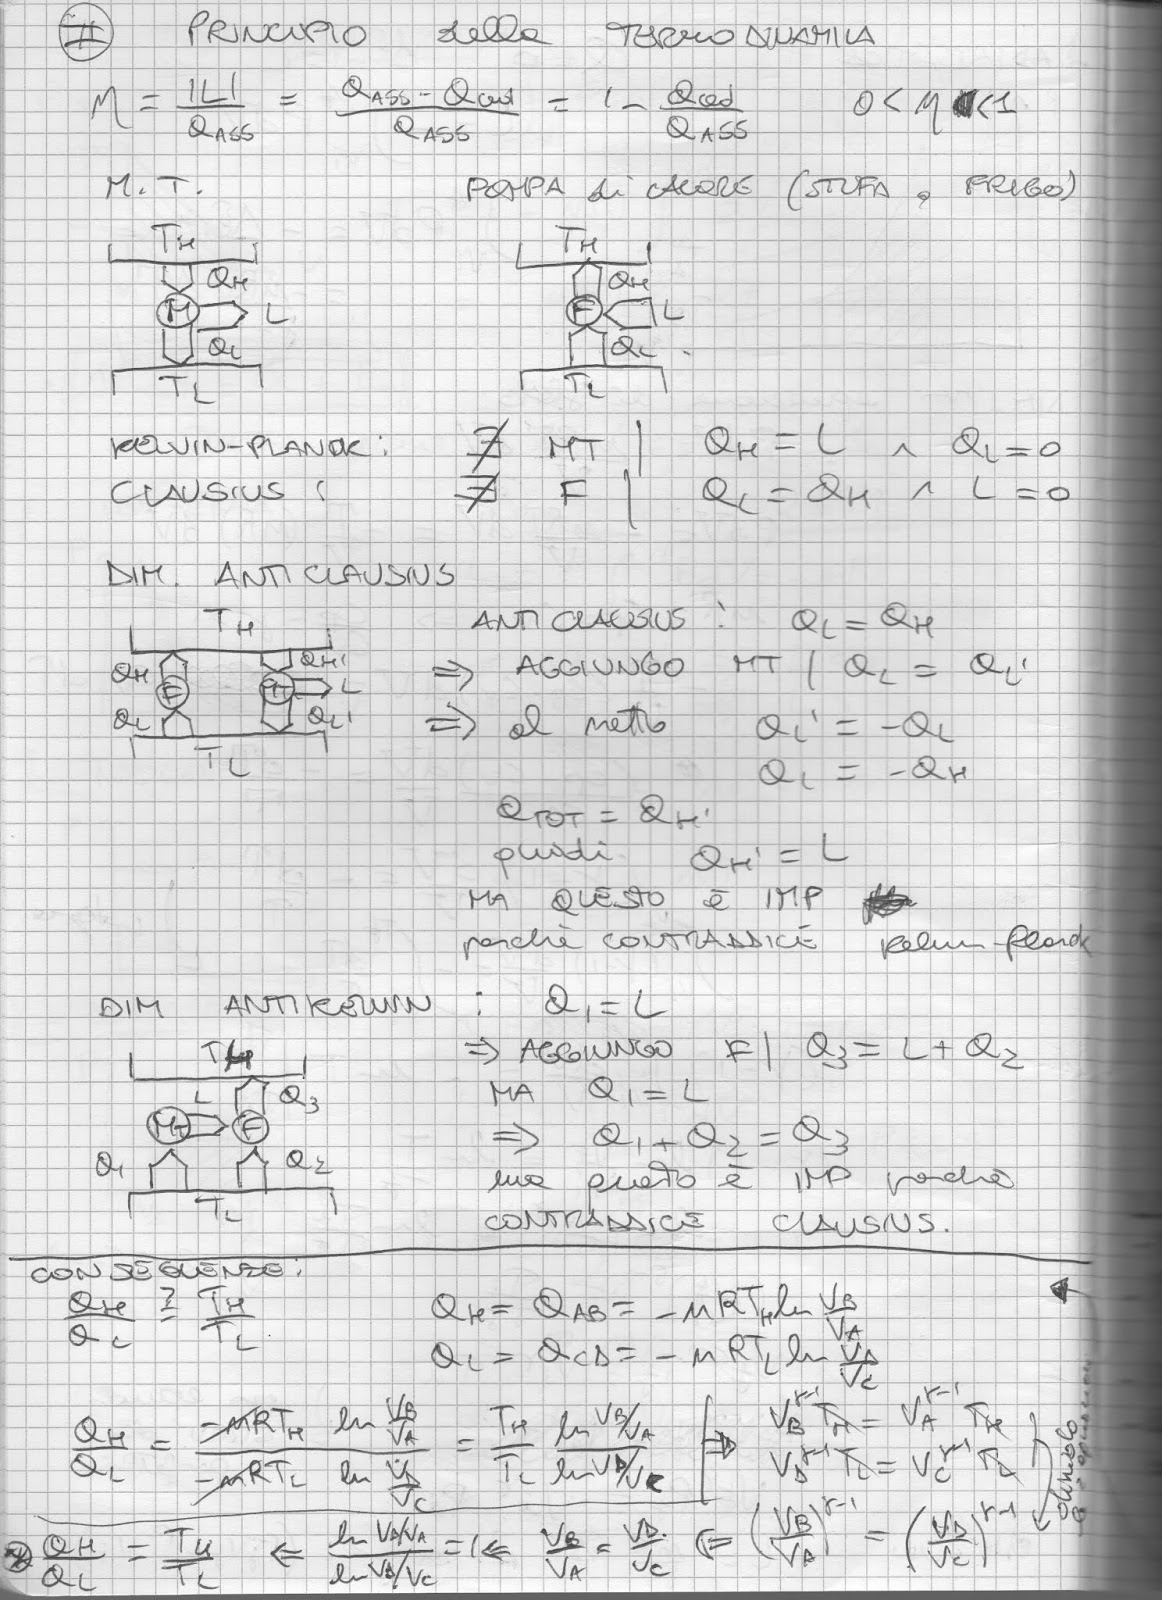 II PRINCIPIO della TERMODINAMICA
η = |L| / QASS = QASS - Qced / QASS = 1 - Qced / QASS 0 < η < 1
M.T. POMPA di CALORE (STUFA, FRIGO)
TH TH
QH QH
M L F L
QL QL
TL TL
KELVIN-PLANCK: ∄ MT | QH = L ∧ QL = 0
CLAUSIUS: ∄ F | QL = QH ∧ L = 0
DIM. ANTICLAUSIUS
TH ANTICLAUSIUS: QL = QH
QH QH' ⇒ AGGIUNGO MT | QL = QL'
F MT L
QL QL' ⇒ al netto QL' = -QL
TL QL = -QH
QTOT = QH'
quindi QH' = L
MA QUESTO è IMP
perchè CONTRADDICE Kelvin-Planck
DIM ANTIKELVIN: Q1 = L
TH ⇒ AGGIUNGO F | Q3 = L + Q2
L Q3 MA Q1 = L
MT F ⇒ Q1 + Q2 = Q3
Q1 Q2 ma questo è IMP perchè
TL CONTRADDICE CLAUSIUS.
CONSEGUENZE:
QH / QL ?= TH / TL QH = QAB = -nRTH ln VB/VA
QL = QCD = -nRTL ln VD/VC
QH / QL = -nRTH ln VB/VA / -nRTL ln VD/VC = TH / TL ln VB/VA / ln VD/VC ⇒ VB^γ-1 TH = VA^γ-1 TH
VD^γ-1 TL = VC^γ-1 TL
QH / QL = TH / TL ⇐ ln VB/VA / ln VD/VC = 1 ⇐ VB/VA = VD/VC ⇐ (VB/VA)^γ-1 = (VD/VC)^γ-1